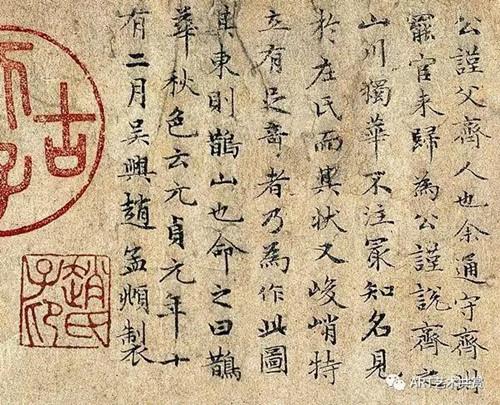 公謹父齊人也余通守齊州
罷官来歸為公謹說齊之
山川獨華不注冣知名見
於左氏而其狀又峻峭特
立有足奇者乃為作此圖
其東則鵲山也命之曰鵲
華秋色云元貞元年十
有二月吳興趙孟頫製
趙氏子昂
ART艺术共赏